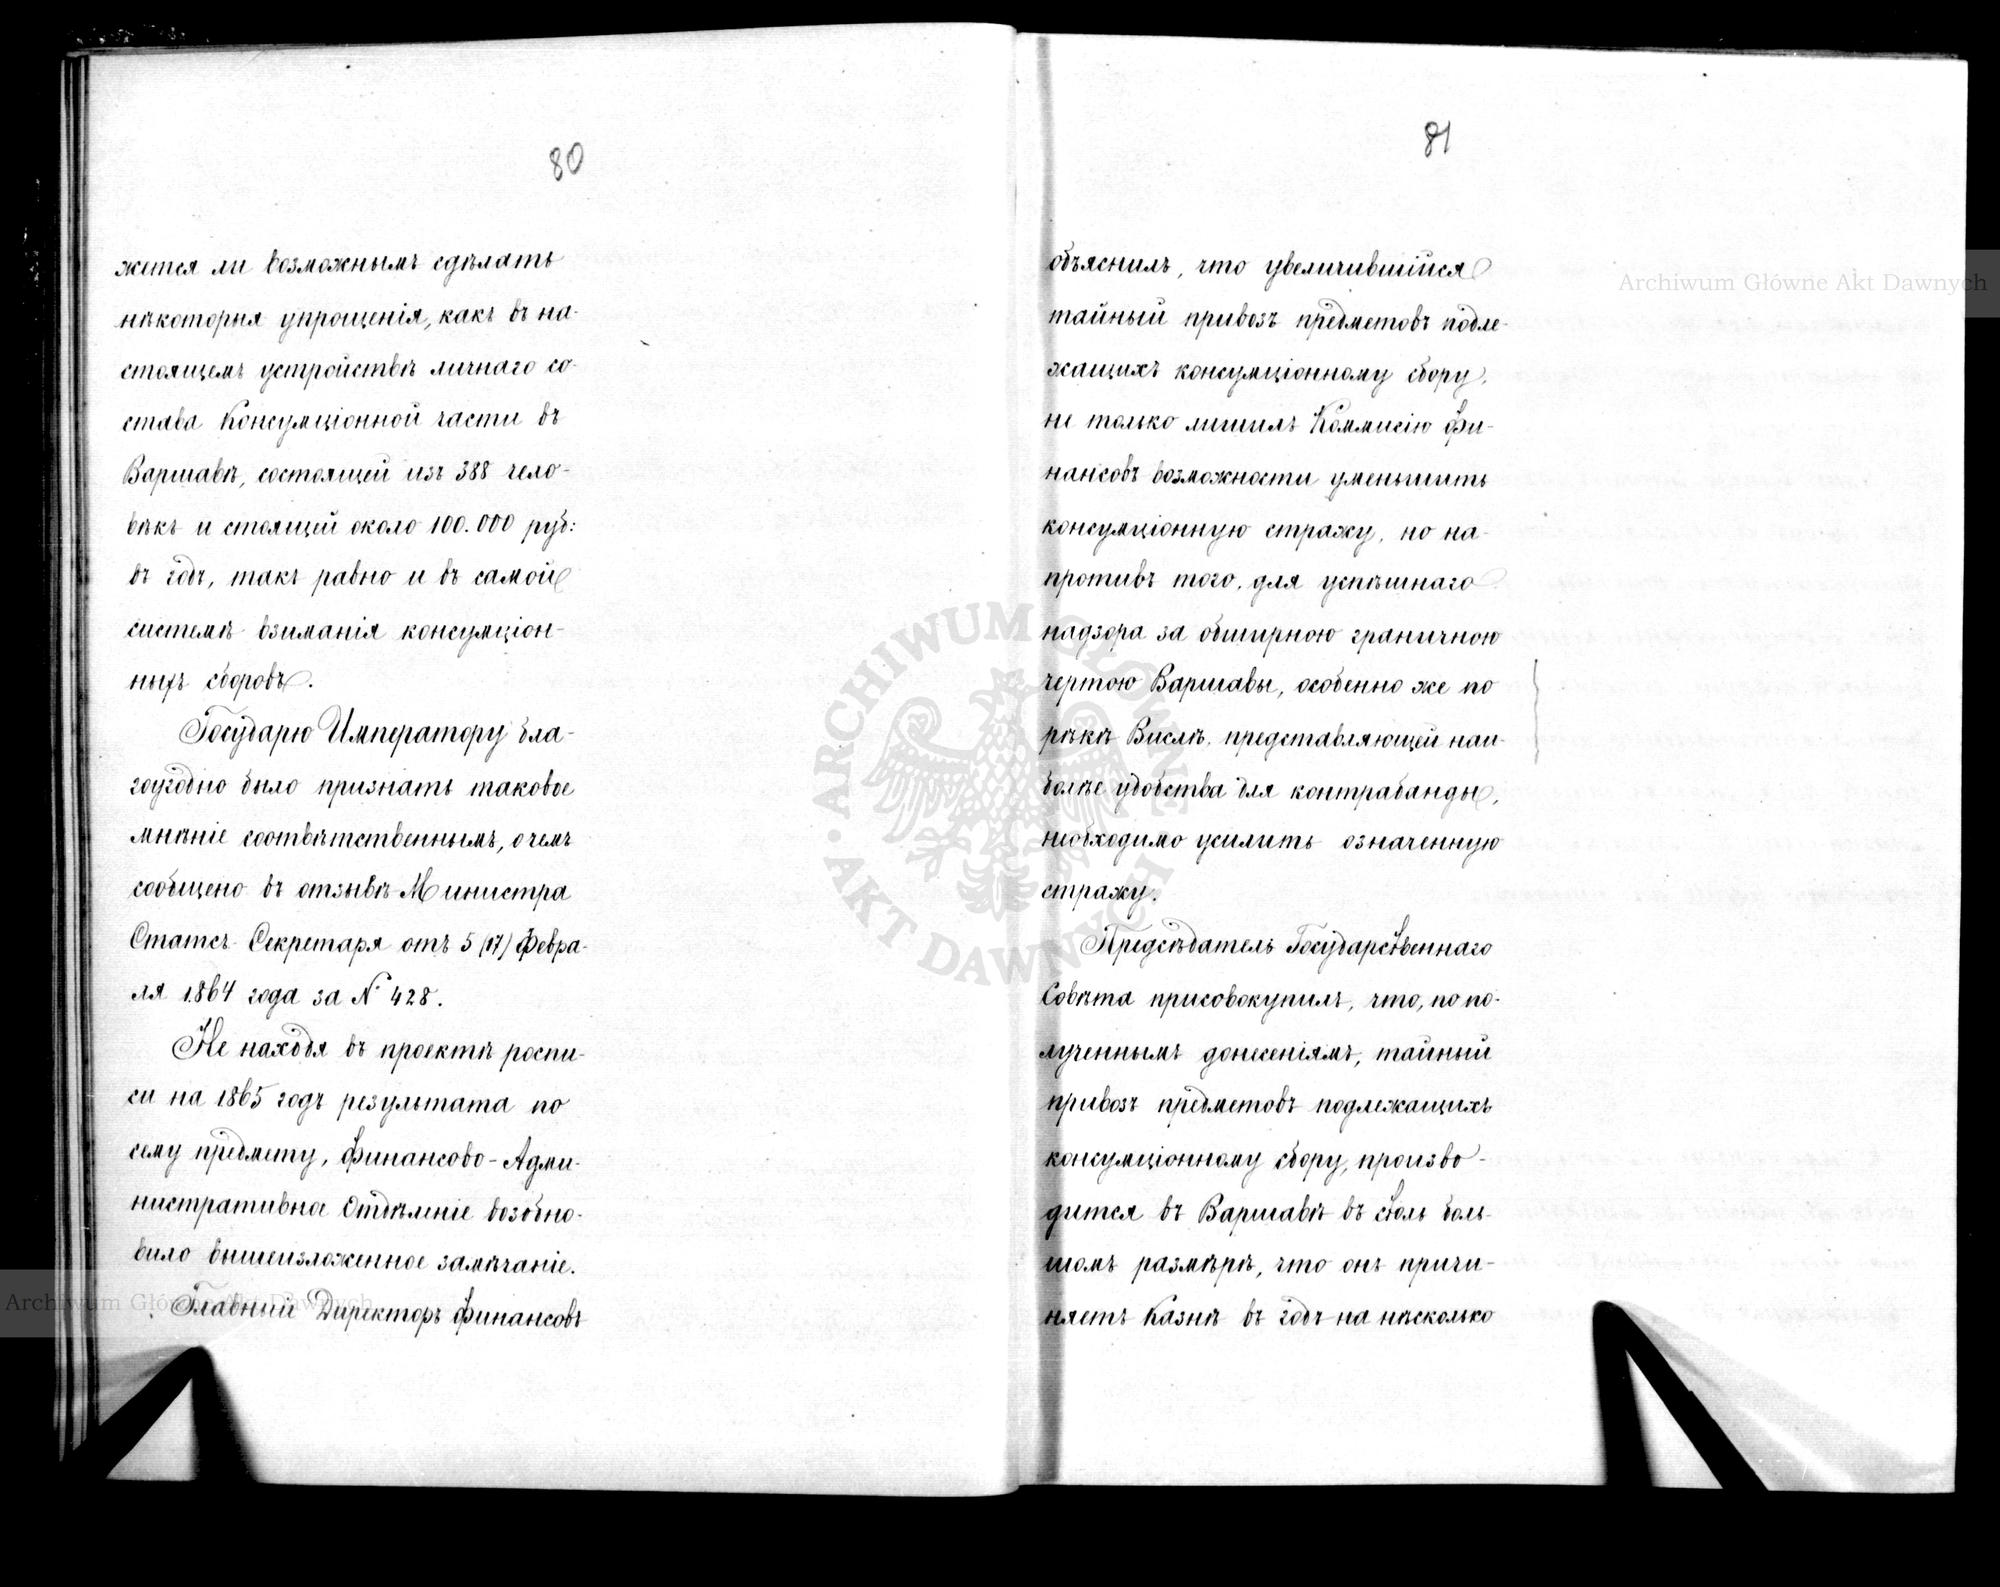 80
жется ли возможнымъ сдѣлать
нѣкоторыя упрощенія, какъ въ на-
стоящемъ устройствѣ личнаго со-
става Консумціонной части въ
Варшавѣ, состоящей изъ 388 чело-
вѣкъ и стоящей около 100.000 руб:
въ годъ, такъ равно и въ самой
системѣ взиманія консумціон-
ныхъ сборовъ.
Государю Императору бла-
гоугодно было признать таковое
мнѣніе соотвѣтственнымъ, о чемъ
сообщено въ отзывѣ Министра
Статсъ-Секретаря отъ 5 (17) Февра-
ля 1864 года за № 428.
Не находя въ проектѣ роспи-
си на 1865 годъ результата по
сему предмету, Финансово-Адми-
нистративное Отдѣленіе возобно-
вило вышеизложенное замѣчаніе.
Главный Директоръ Финансовъ
81
объяснилъ, что увеличившійся
тайный привозъ предметовъ подле-
жащихъ консумціонному сбору,
не только лишилъ Коммисію Фи-
нансовъ возможности уменьшить
консумціонную стражу, но на-
противъ того, для успѣшнаго
надзора за обширною граничною
чертою Варшавы, особенно же по
рѣкѣ Вислѣ, представляющей наи-
болѣе удобства для контрабанды,
необходимо усилить означенную
стражу.
Предсѣдатель Государственнаго
Совѣта присовокупилъ, что, по по-
лученнымъ донесеніямъ, тайный
привозъ предметовъ подлежащихъ
консумціонному сбору, произво-
дится въ Варшавѣ въ столь боль-
шомъ размѣрѣ, что онъ причи-
няетъ Казнѣ въ годъ на нѣсколько
Archiwum Główne Akt Dawnych
Archiwum Główne Akt Dawnych
ARCHIWUM GŁÓWNE AKT DAWNYCH